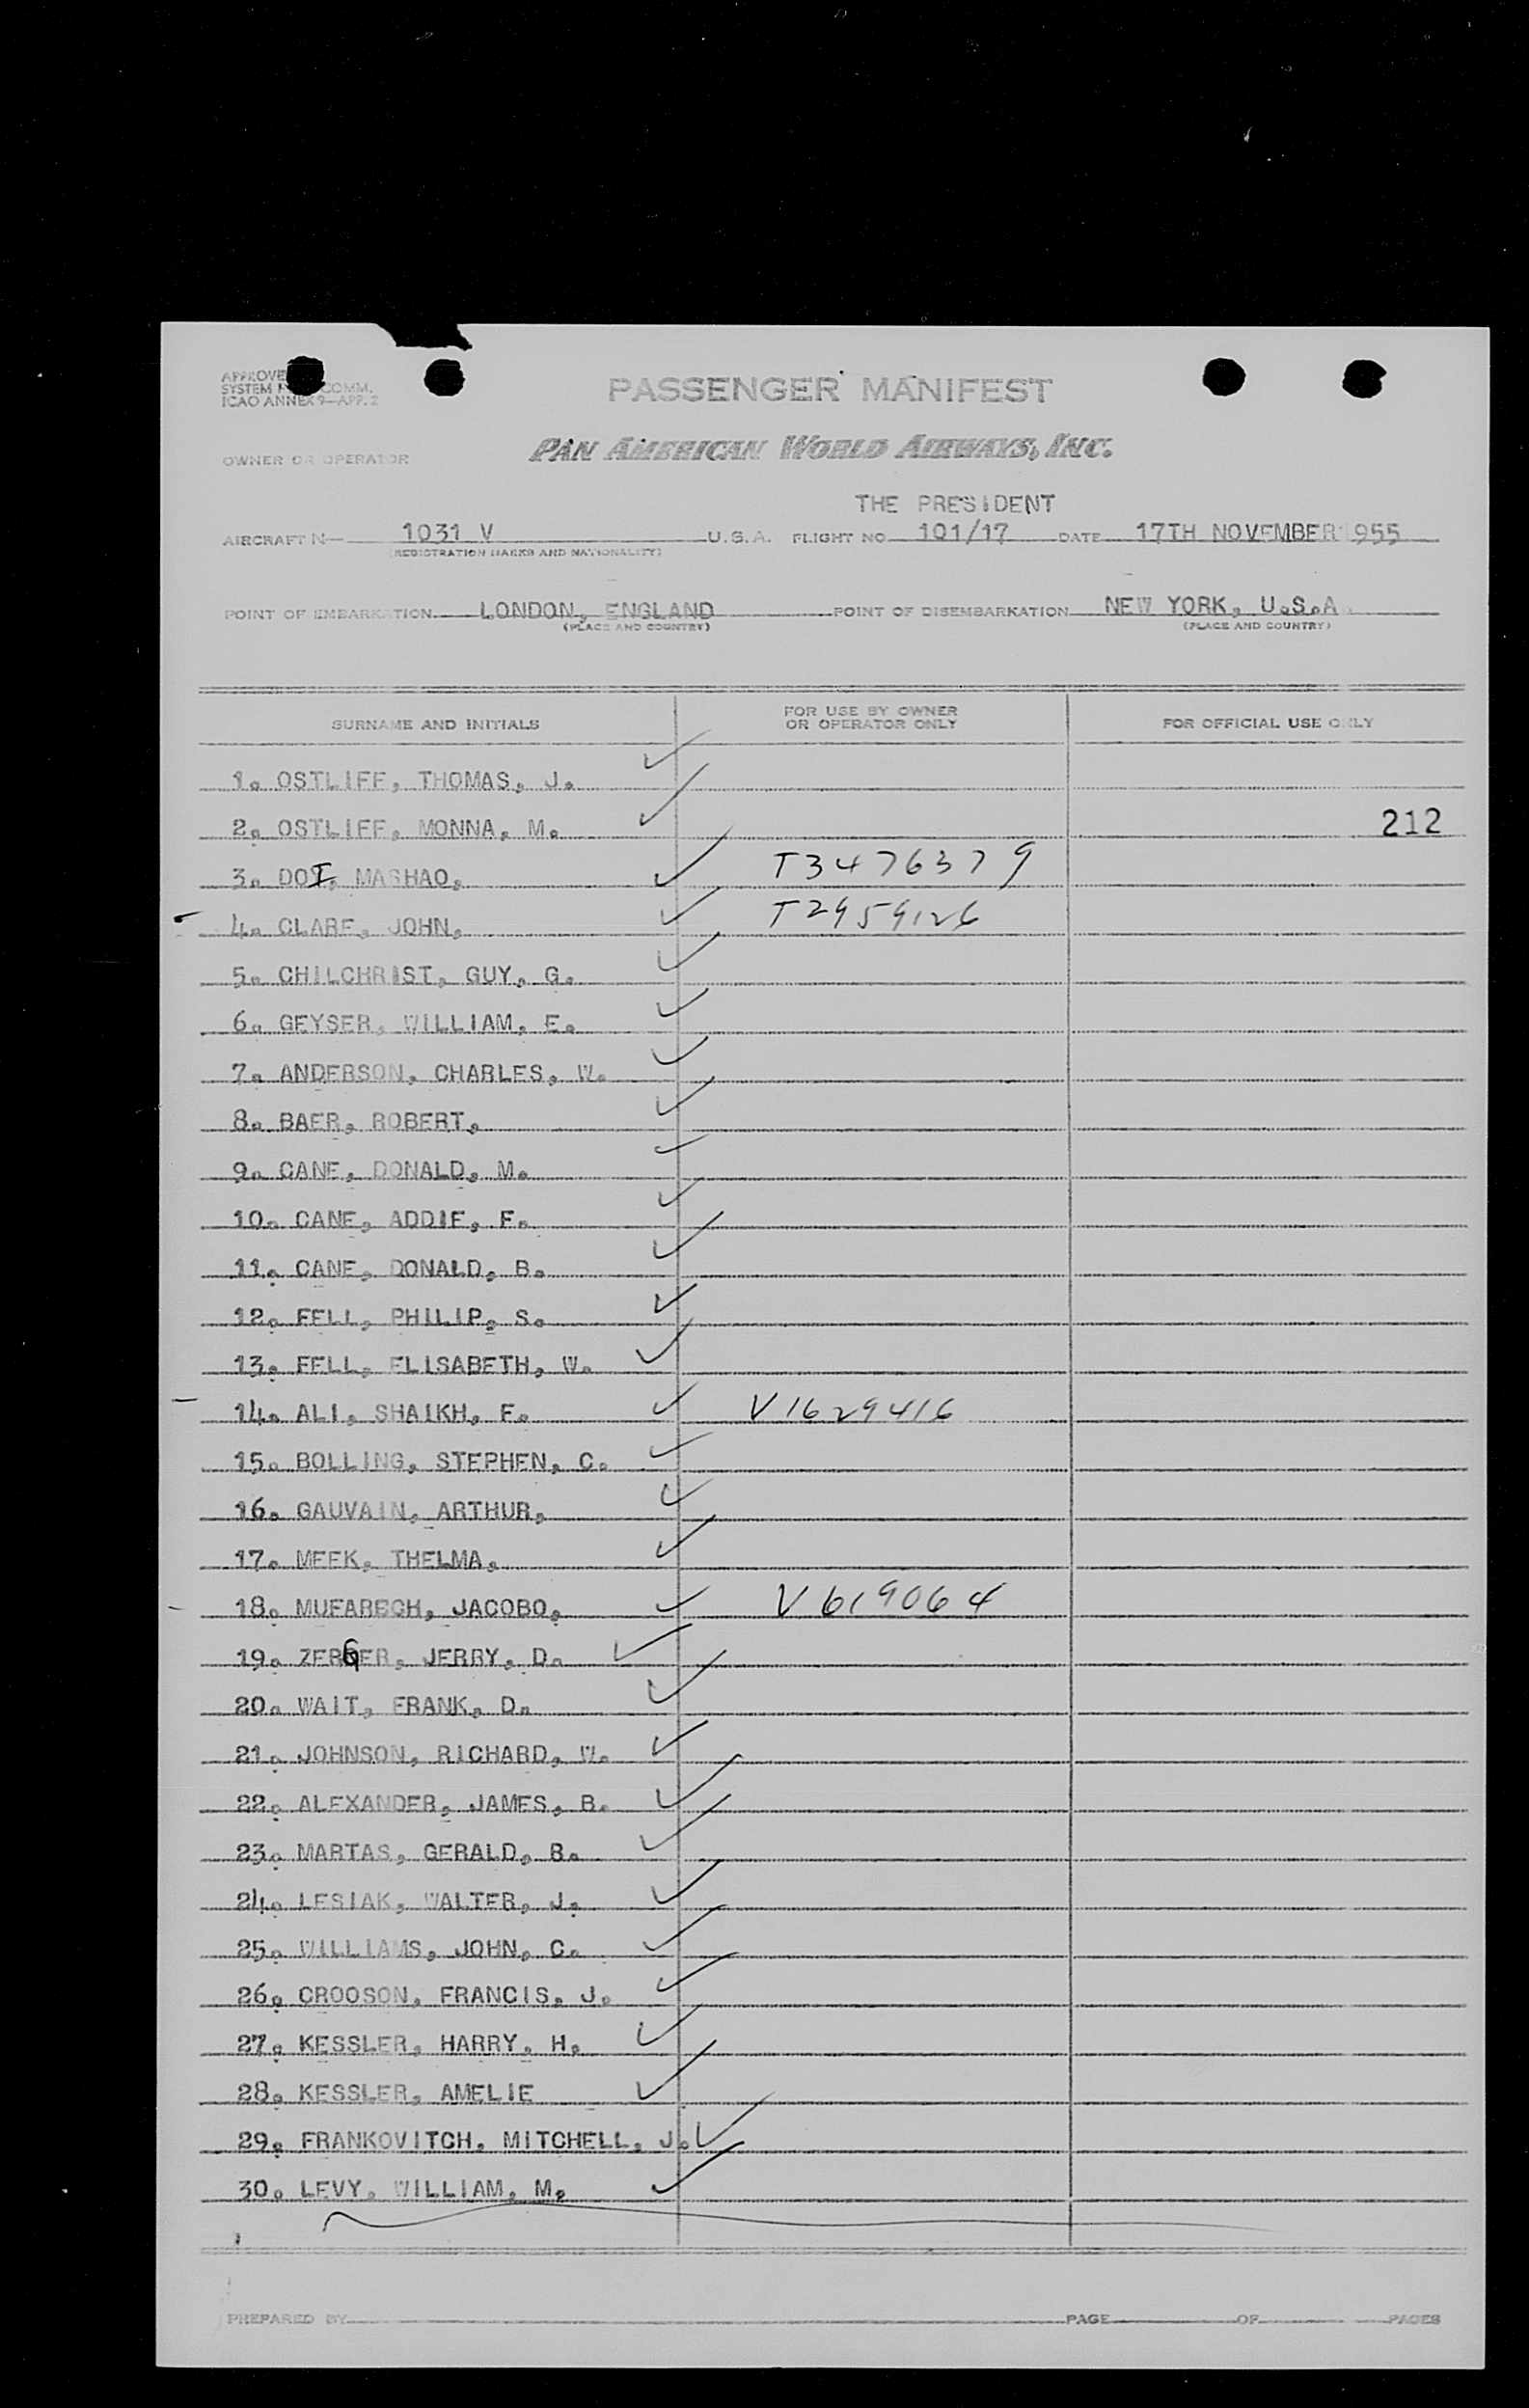 APPROVE
SYSTEM COMM.
ICAO ANNEX 9—APP. 2
PASSENGER MANIFEST
OWNER OR OPERATOR
PAN AMERICAN WORLD AIRWAYS, INC.
THE PRESIDENT
AIRCRAFT N— 1031 V U.S.A. FLIGHT NO 101/17 DATE 17TH NOVEMBER 1955
(REGISTRATION MARKS AND NATIONALITY)
POINT OF EMBARKATION LONDON, ENGLAND POINT OF DISEMBARKATION NEW YORK, U.S.A.
(PLACE AND COUNTRY) (PLACE AND COUNTRY)
SURNAME AND INITIALS
FOR USE BY OWNER
OR OPERATOR ONLY
FOR OFFICIAL USE ONLY
1. OSTLIFF, THOMAS, J.
2. OSTLIFF, MONNA, M. 212
3. DOI, MASHAO, T3476379
4. CLARE, JOHN, T2959126
5. CHILCHRIST, GUY, G.
6. GEYSER, WILLIAM, E.
7. ANDERSON, CHARLES, W.
8. BAER, ROBERT,
9. CANE, DONALD, M.
10. CANE, ADDIE, F.
11. CANE, DONALD, B.
12. FELL, PHILIP, S.
13. FELL, ELISABETH, W.
14. ALI, SHAIKH, F. V1629416
15. BOLLING, STEPHEN, C.
16. GAUVAIN, ARTHUR,
17. MEEK, THELMA,
18. MUFARECH, JACOBO, V619064
19. ZERGER, JERRY, D.
20. WAIT, FRANK, D.
21. JOHNSON, RICHARD, W.
22. ALEXANDER, JAMES, B.
23. MARTAS, GERALD, B.
24. LESIAK, WALTER, J.
25. WILLIAMS, JOHN, C.
26. CROOSON, FRANCIS, J.
27. KESSLER, HARRY, H.
28. KESSLER, AMELIE
29. FRANKOVITCH, MITCHELL, J.
30. LEVY, WILLIAM, M.
PREPARED BY PAGE OF PAGES